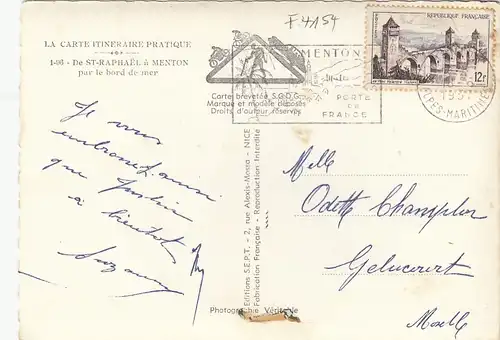 LA CARTE ITINÉRAIRE PRATIQUE
1-06 - De ST-RAPHAËL à MENTON
par le bord de mer
F 4154
Carte brevetée S.G.D.G.
Marque et modèle déposés
Droits d'auteur réservés
MENTON
PORTE
DE
FRANCE
REPUBLIQUE FRANÇAISE
12F
ALPES-MARITIMES
Je vous
embrasse ainsi
que
à bientôt
Suzanne
Editions S.E.P.T. - 2, rue Alexis-Mossa - NICE
Fabrication Française - Reproduction Interdite
Photographie Véritable
Melle
Odette Champlon
Gelucourt
Moselle